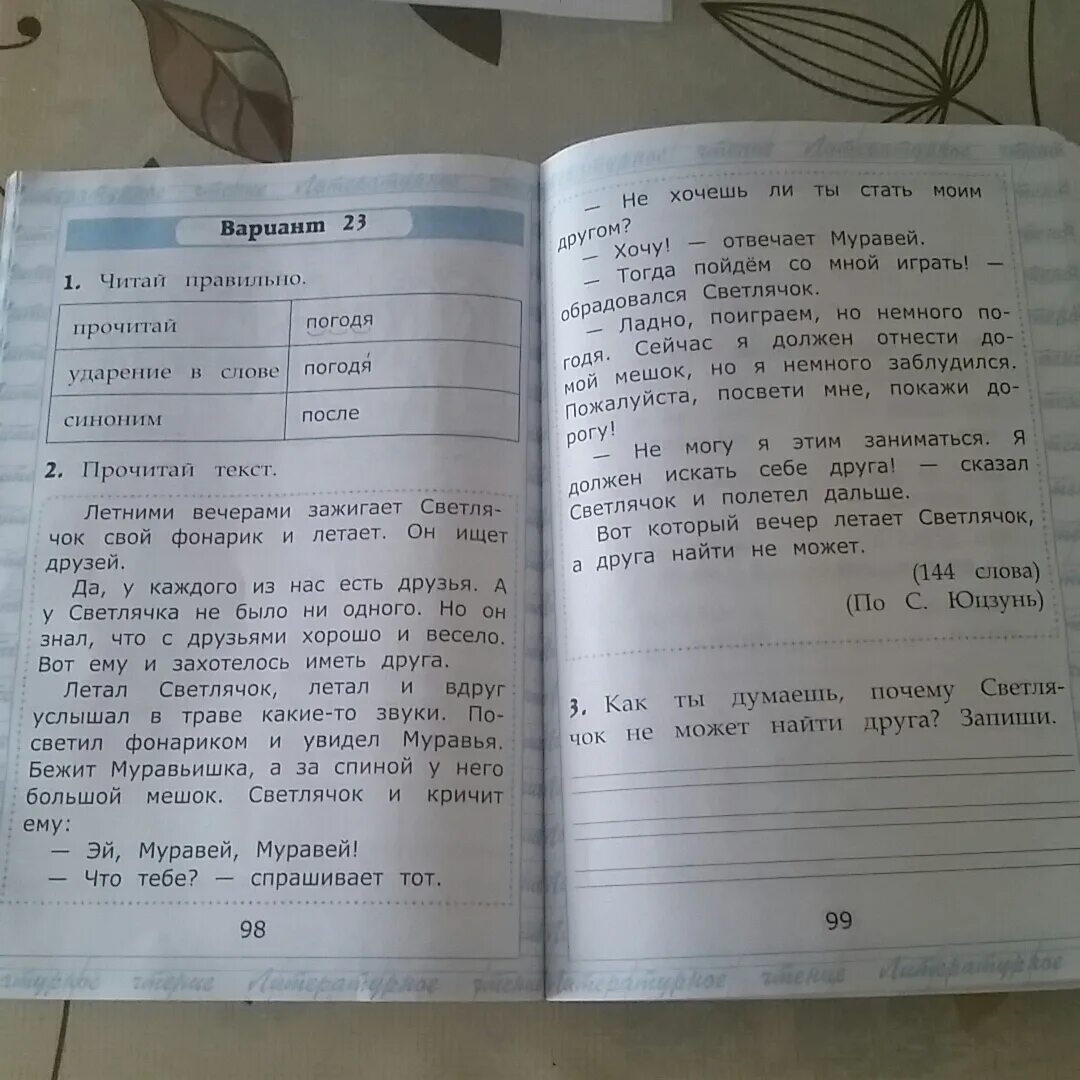 Литературное чтение Литературное
Вариант 23
1. Читай правильно.
прочитай погодя
ударение в слове погодя́
синоним после
2. Прочитай текст.
Летними вечерами зажигает Светля-
чок свой фонарик и летает. Он ищет
друзей.
Да, у каждого из нас есть друзья. А
у Светлячка не было ни одного. Но он
знал, что с друзьями хорошо и весело.
Вот ему и захотелось иметь друга.
Летал Светлячок, летал и вдруг
услышал в траве какие-то звуки. По-
светил фонариком и увидел Муравья.
Бежит Муравьишка, а за спиной у него
большой мешок. Светлячок и кричит
ему:
— Эй, Муравей, Муравей!
— Что тебе? — спрашивает тот.
98
чтение Литературное
чтение Литературное
— Не хочешь ли ты стать моим
другом?
— Хочу! — отвечает Муравей.
— Тогда пойдём со мной играть! —
обрадовался Светлячок.
— Ладно, поиграем, но немного по-
годя. Сейчас я должен отнести до-
мой мешок, но я немного заблудился.
Пожалуйста, посвети мне, покажи до-
рогу!
— Не могу я этим заниматься. Я
должен искать себе друга! — сказал
Светлячок и полетел дальше.
Вот который вечер летает Светлячок,
а друга найти не может.
(144 слова)
(По С. Юцзунь)
3. Как ты думаешь, почему Светля-
чок не может найти друга? Запиши.
99
Литературное чтение Литературное